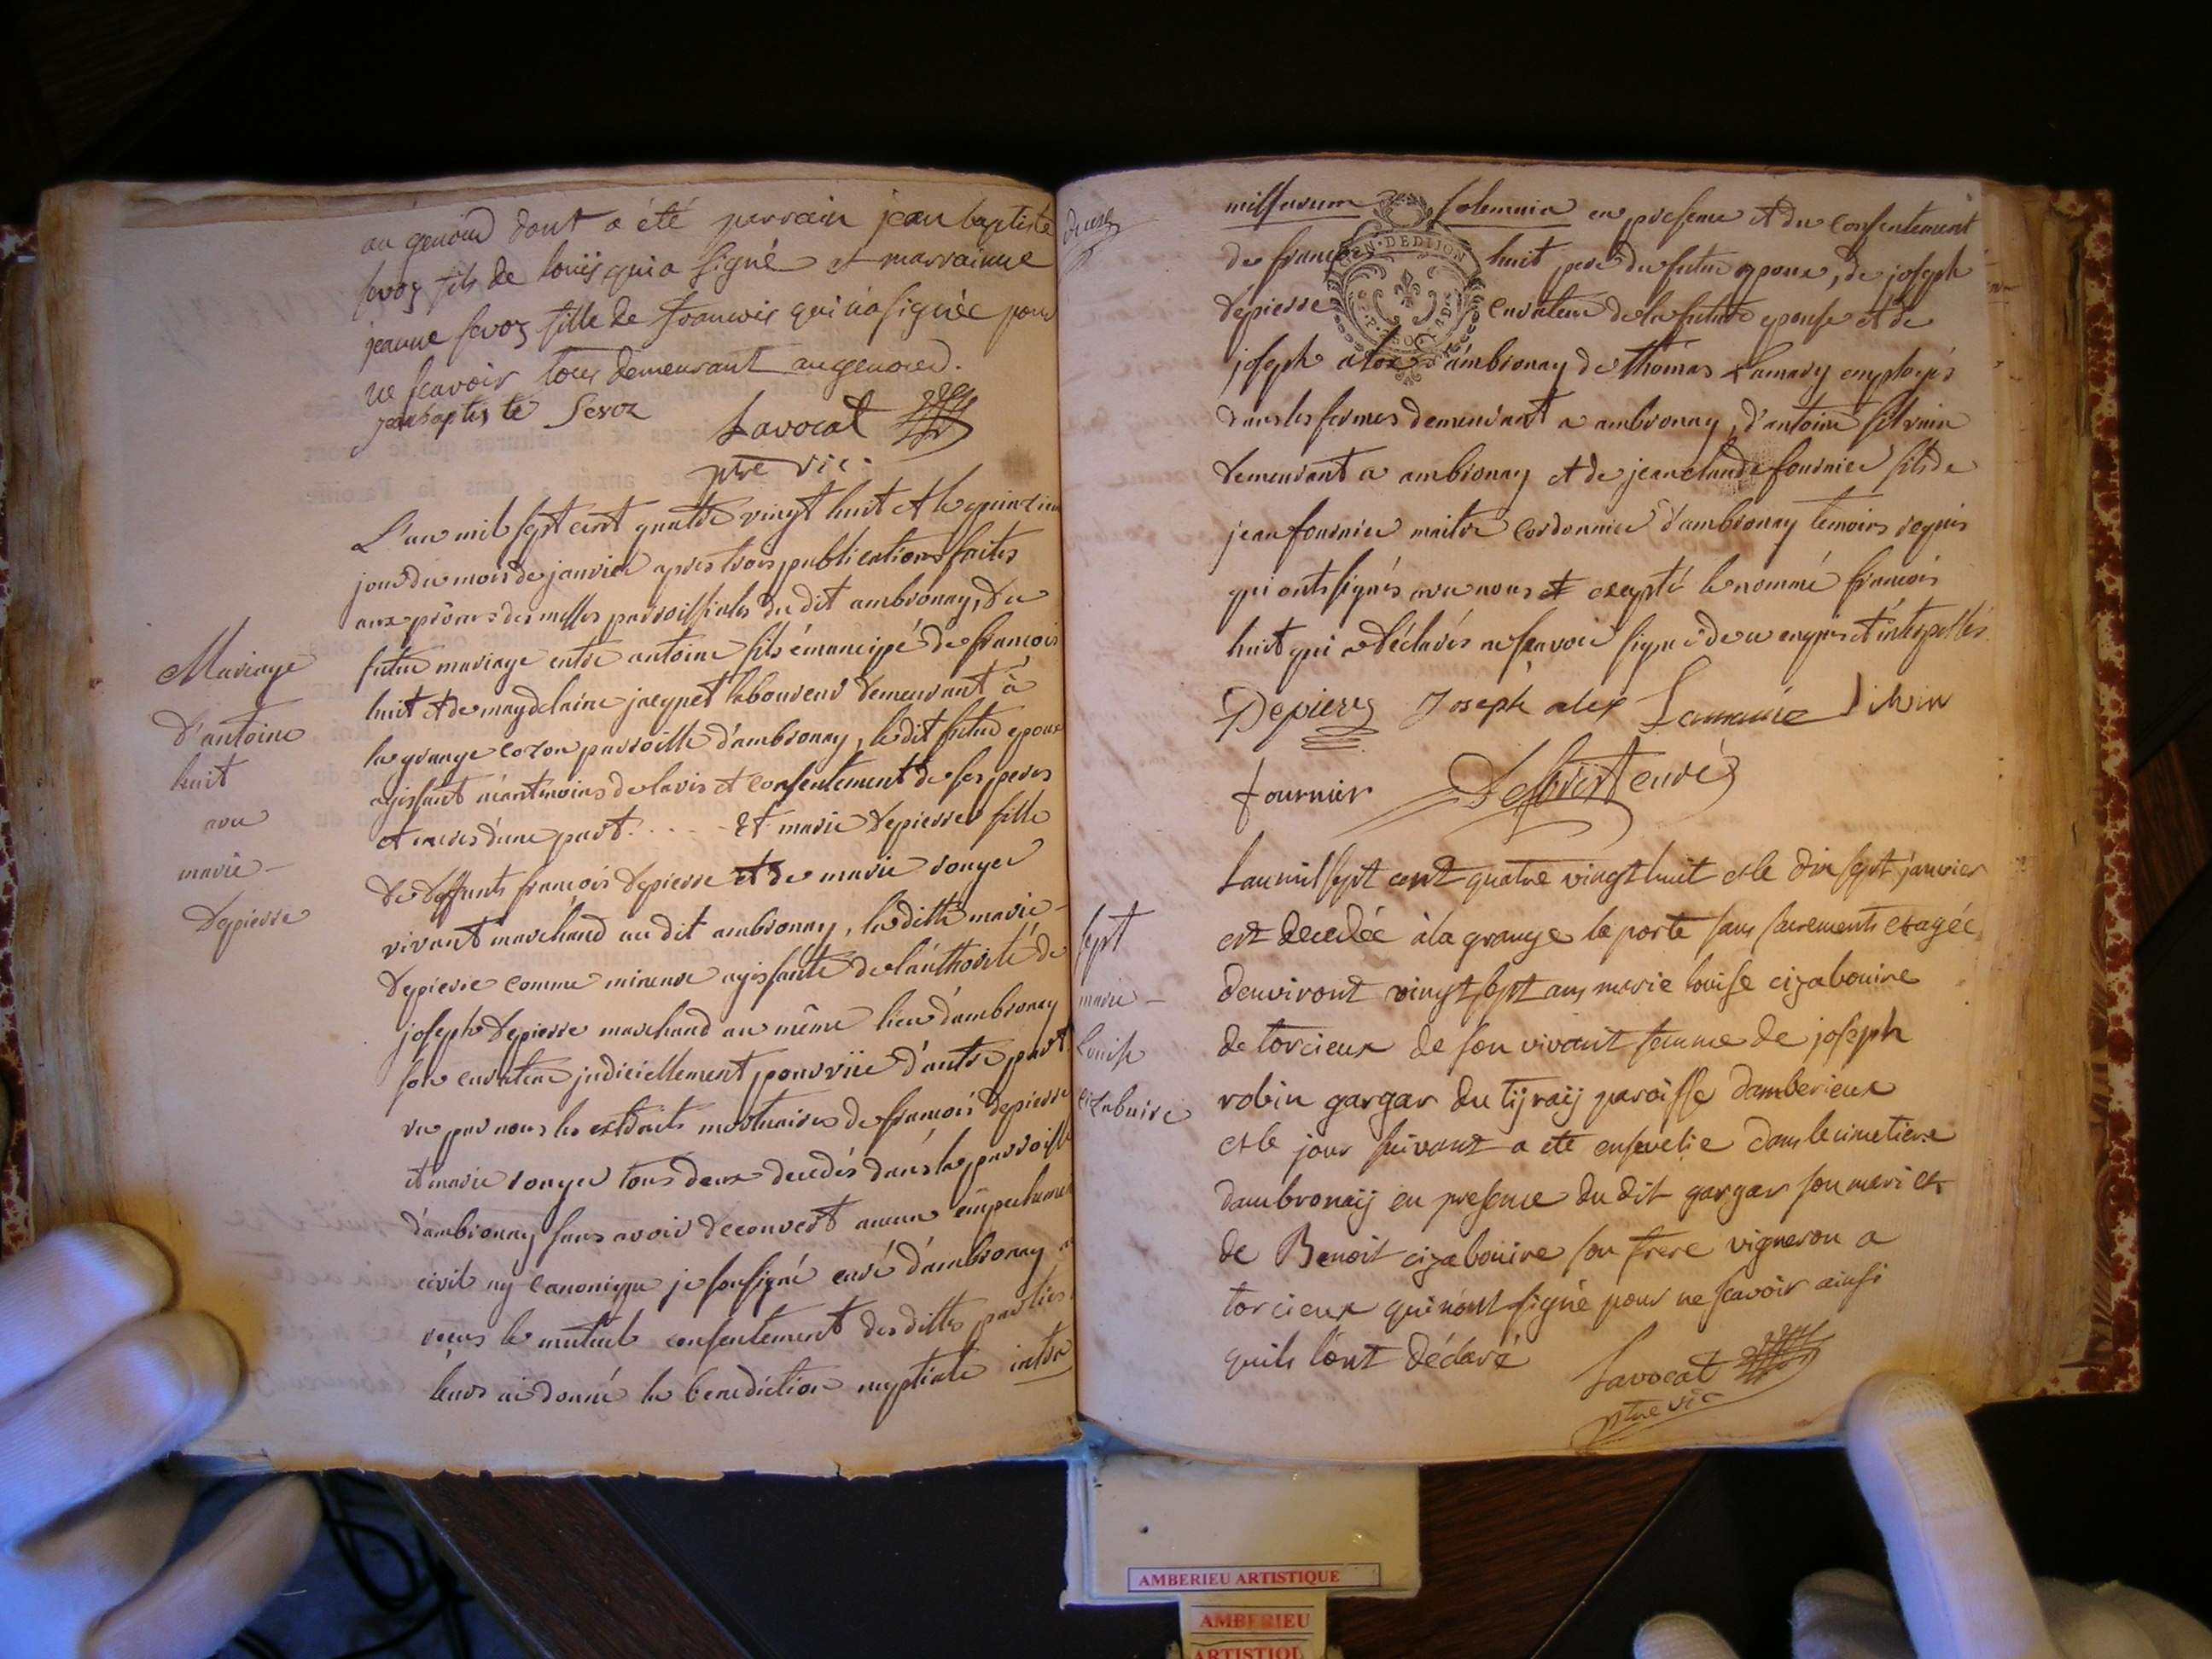 au genoud dont a été parrain jean baptiste
servoz fils de louis qui a signé et marrainne
jeanne servoz fille de francois qui n'a signée pour
ne scavoir tous demeurant au genoud.
jean baptiste Servoz
Lavocat
ptre vic.
L'an mil sept cent quatre vingt huit et le quinzieme
jour du mois de janvier apres trois publications faites
aux prônes des messes parroissiales du dit ambronay, du
futur mariage entre antoine fils émancipé de francois
huit et de magdelaine jacquet laboureur demeurant à
la grange cozon parroisse d'ambronay, le dit futur epoux
agissant néantmoins de lavis et consentement de ses peres
et meres d'une part. - - - Et marie depierre fille
de deffunts francois depierre et de marie rouyer
vivant marchand au dit ambronay, la ditte marie
depierre comme mineure agissante de l'authorité de
joseph depierre marchand au même lieu d'ambronay
son curateur judiciellement pourvüe d'autre part
vu par nous les extraits mortuaires de francois depierre
et marie rouyer tous deux decedés dans la parroisse
d'ambronay sans avoir decouvert aucun empechement
civil ny canonique je soussigné curé d'ambronay ai
reçus le mutuel consentement des dittes parties
leurs ai donné la benediction nuptiale intra
Mariage
d'antoine
huit
avec
marie
depierre
deux
missarum solemnia en presence et du consentement
de francois huit pere du futur epoux, de joseph
depierre curateur de la future epouse et de
joseph alex d'ambronay de thomas Lamary employés
dans les fermes demeurant a ambronay, d'antoine silvain
demeurant a ambronay et de jean claude fournier fils de
jean fournier maitre cordonnier d'ambronay temoins requis
qui onts signés avec nous et excepté le nommé francois
huit qui a déclarés ne scavoir signer de ce enquis et interpellés.
GEN·DEDIJON
Depierre Joseph alex Lamarie Silvin
fournier curé
Lan mil sept cent quatre vingt huit et le dix sept janvier
est decedée à la grange la porte sans sacrements et agée
d'environt vingt sept ans marie louise cizabouire
de torcieux de son vivant femme de joseph
robin gargar du tijraij paroisse damberieux
et le jour suivant a ete ensevelie dans le cimetiere
dambronaij en presence du dit gargar son mari et
de Benoit cizabouire son frere vigneron a
torcieux qui n'ont signé pour ne scavoir ainsi
quils l'ont déclaré
Lavocat
ptre vic
sept
marie
Louise
cizabuire
AMBERIEU ARTISTIQUE
AMBERIEU